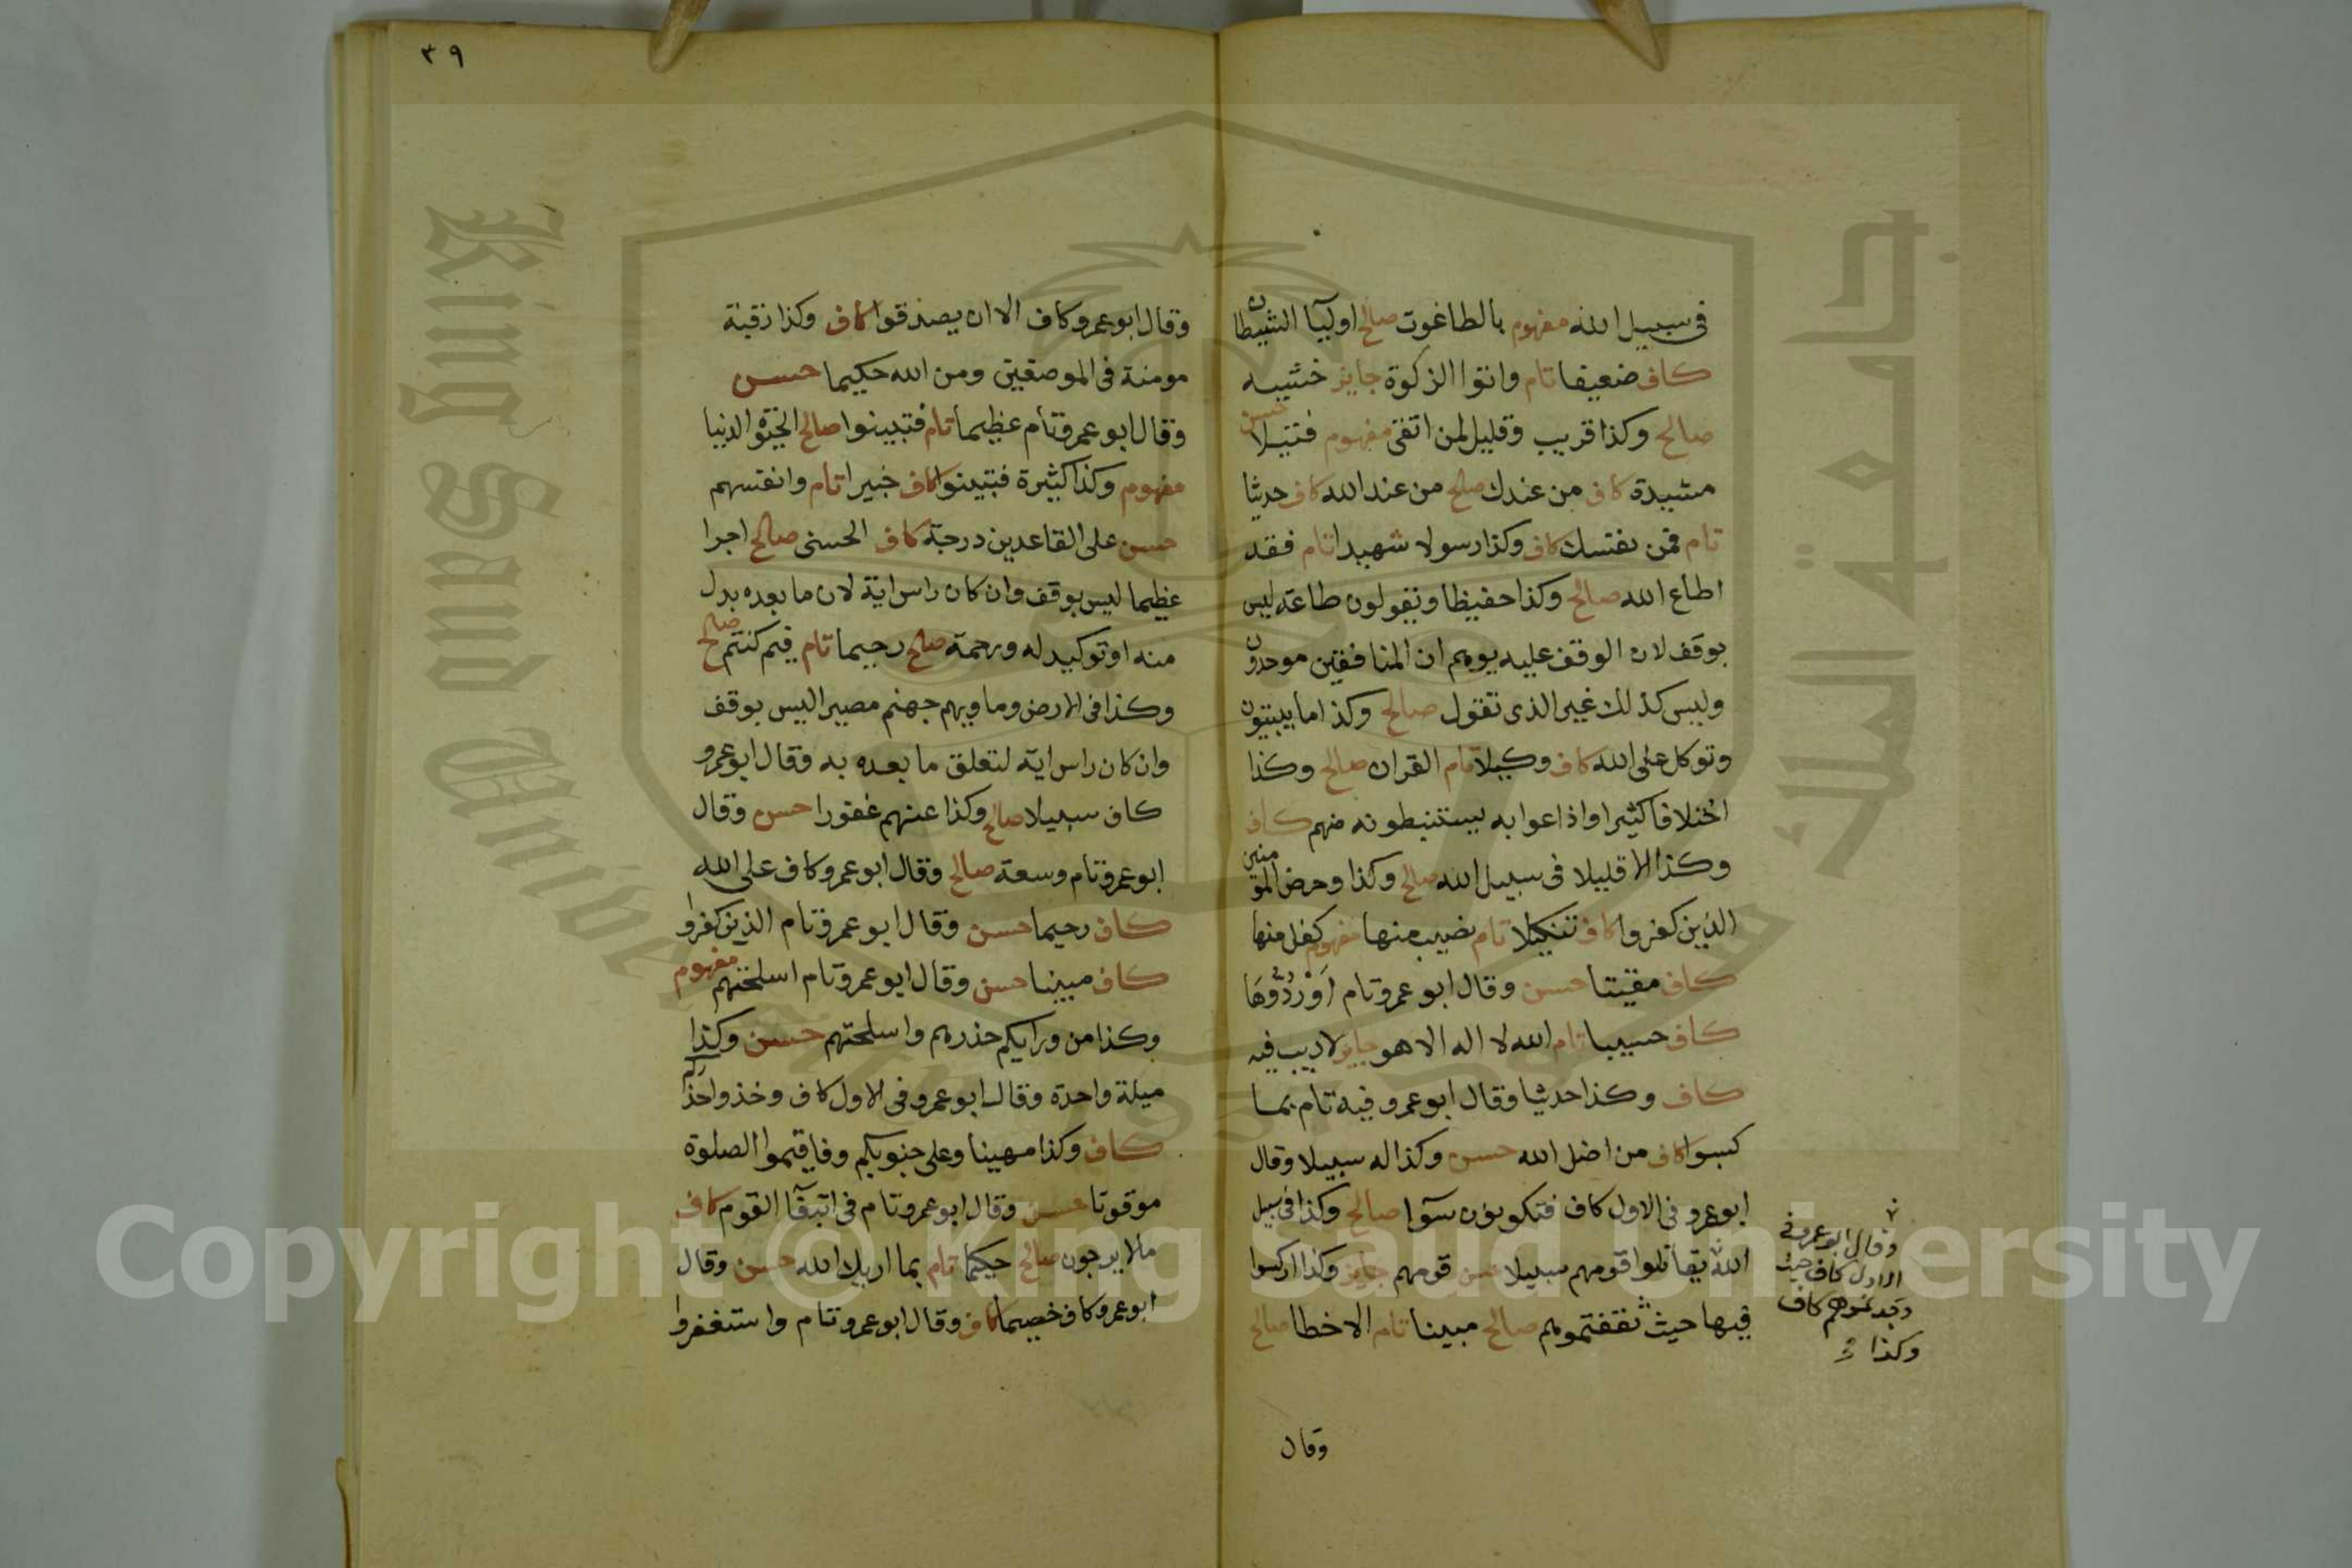 في سبيل الله مفهوم بالطاغوت صالح اوليآا الشيطان
كاف ضعيفا تام واتوا الزكوة جايز خشيه
صالح وكذا قريب وقليل لمن اتقى مفهوم فتيلا حسن
مشيدة كاف من عندك صالح من عند الله كاف حديثا
تام فمن نفسك كاف وكذا رسولا شهيدا تام فقد
اطاع الله صالح وكذا حفيظا ويقولون طاعة ليس
بوقف لان الوقف عليه يوهم ان المنافقين موحدون
وليس كذلك غير الذى تقول صالح وكذا ما يبيتون
وتوكل على الله كاف وكيلا تام القران صالح وكذا
اختلافا كثيرا واذاعوا به يستنبطونه منهم كاف
وكذا الا قليلا فى سبيل الله صالح وكذا وحرض المومنين
الذين كفروا كاف تنكيلا تام نصيب منها مفهوم كفل منها
كاف مقيتا حسن وقال ابو عمرو تام اَوْ رُدُّوْهَا
كاف حسيبا تام الله لا اله الا هو جايز لا ريب فيه
كاف وكذا حديثا وقال ابو عمرو فيه تام بما
كسبوا كاف من اضل الله حسن وكذا له سبيلا وقال
ابو عمرو في الاول كاف فتكونون سوآا صالح وكذا في سبيل
الله يقاتلوا قومهم سبيلا حسن قومهم جايز وكذا اركسوا
فيها حيث ثقفتموهم صالح مبينا تام الا خطا صالح
وقال ابو عمرو في
الاول كاف حيث
وجدتموهم كاف
وكذا
وقال
٣٩
وقال ابو عمرو كاف الا ان يصدقوا كاف وكذا رقبة
مومنة فى الموضعين ومن الله حكيما حسن
وقال ابو عمرو تام عظيما تام فتبينوا صالح الحيوة الدنيا
مفهوم وكذا كثيرة فتبينوا كاف خبيرا تام وانفسهم
حسن على القاعدين درجة كاف الحسنى صالح اجرا
عظيما ليس بوقف وان كان راس اية لان ما بعده بدل
منه او توكيد له ورحمة صالح رحيما تام فيم كنتم صالح
وكذا فى الارض وماويهم جهنم مصيرا ليس بوقف
وان كان راس اية لتعلق ما بعده به وقال ابو عمرو
كاف سبيلا صالح وكذا عنهم غفورا حسن وقال
ابو عمرو تام وسعة صالح وقال ابو عمرو كاف على الله
كاف رحيما حسن وقال ابو عمرو تام الذين كفروا
كاف مبينا حسن وقال ابو عمرو تام اسلحتهم مفهوم
وكذا من ورايكم حذرهم واسلحتهم حسن وكذا
ميلة واحدة وقال ابو عمرو فى الاول كاف وخذوا حذركم
كاف وكذا مهينا وعلى جنوبكم وفاقيموا الصلوة
موقوتا حسن وقال ابو عمرو تام فى ابتغآا القوم كاف
مالا يرجون صالح حكيما تام بما اريك الله حسن وقال
ابو عمرو كاف خصيما كاف وقال ابو عمرو تام واستغفروا
جامعة الملك سعود
King Saud University
1957
Copyright © King Saud University